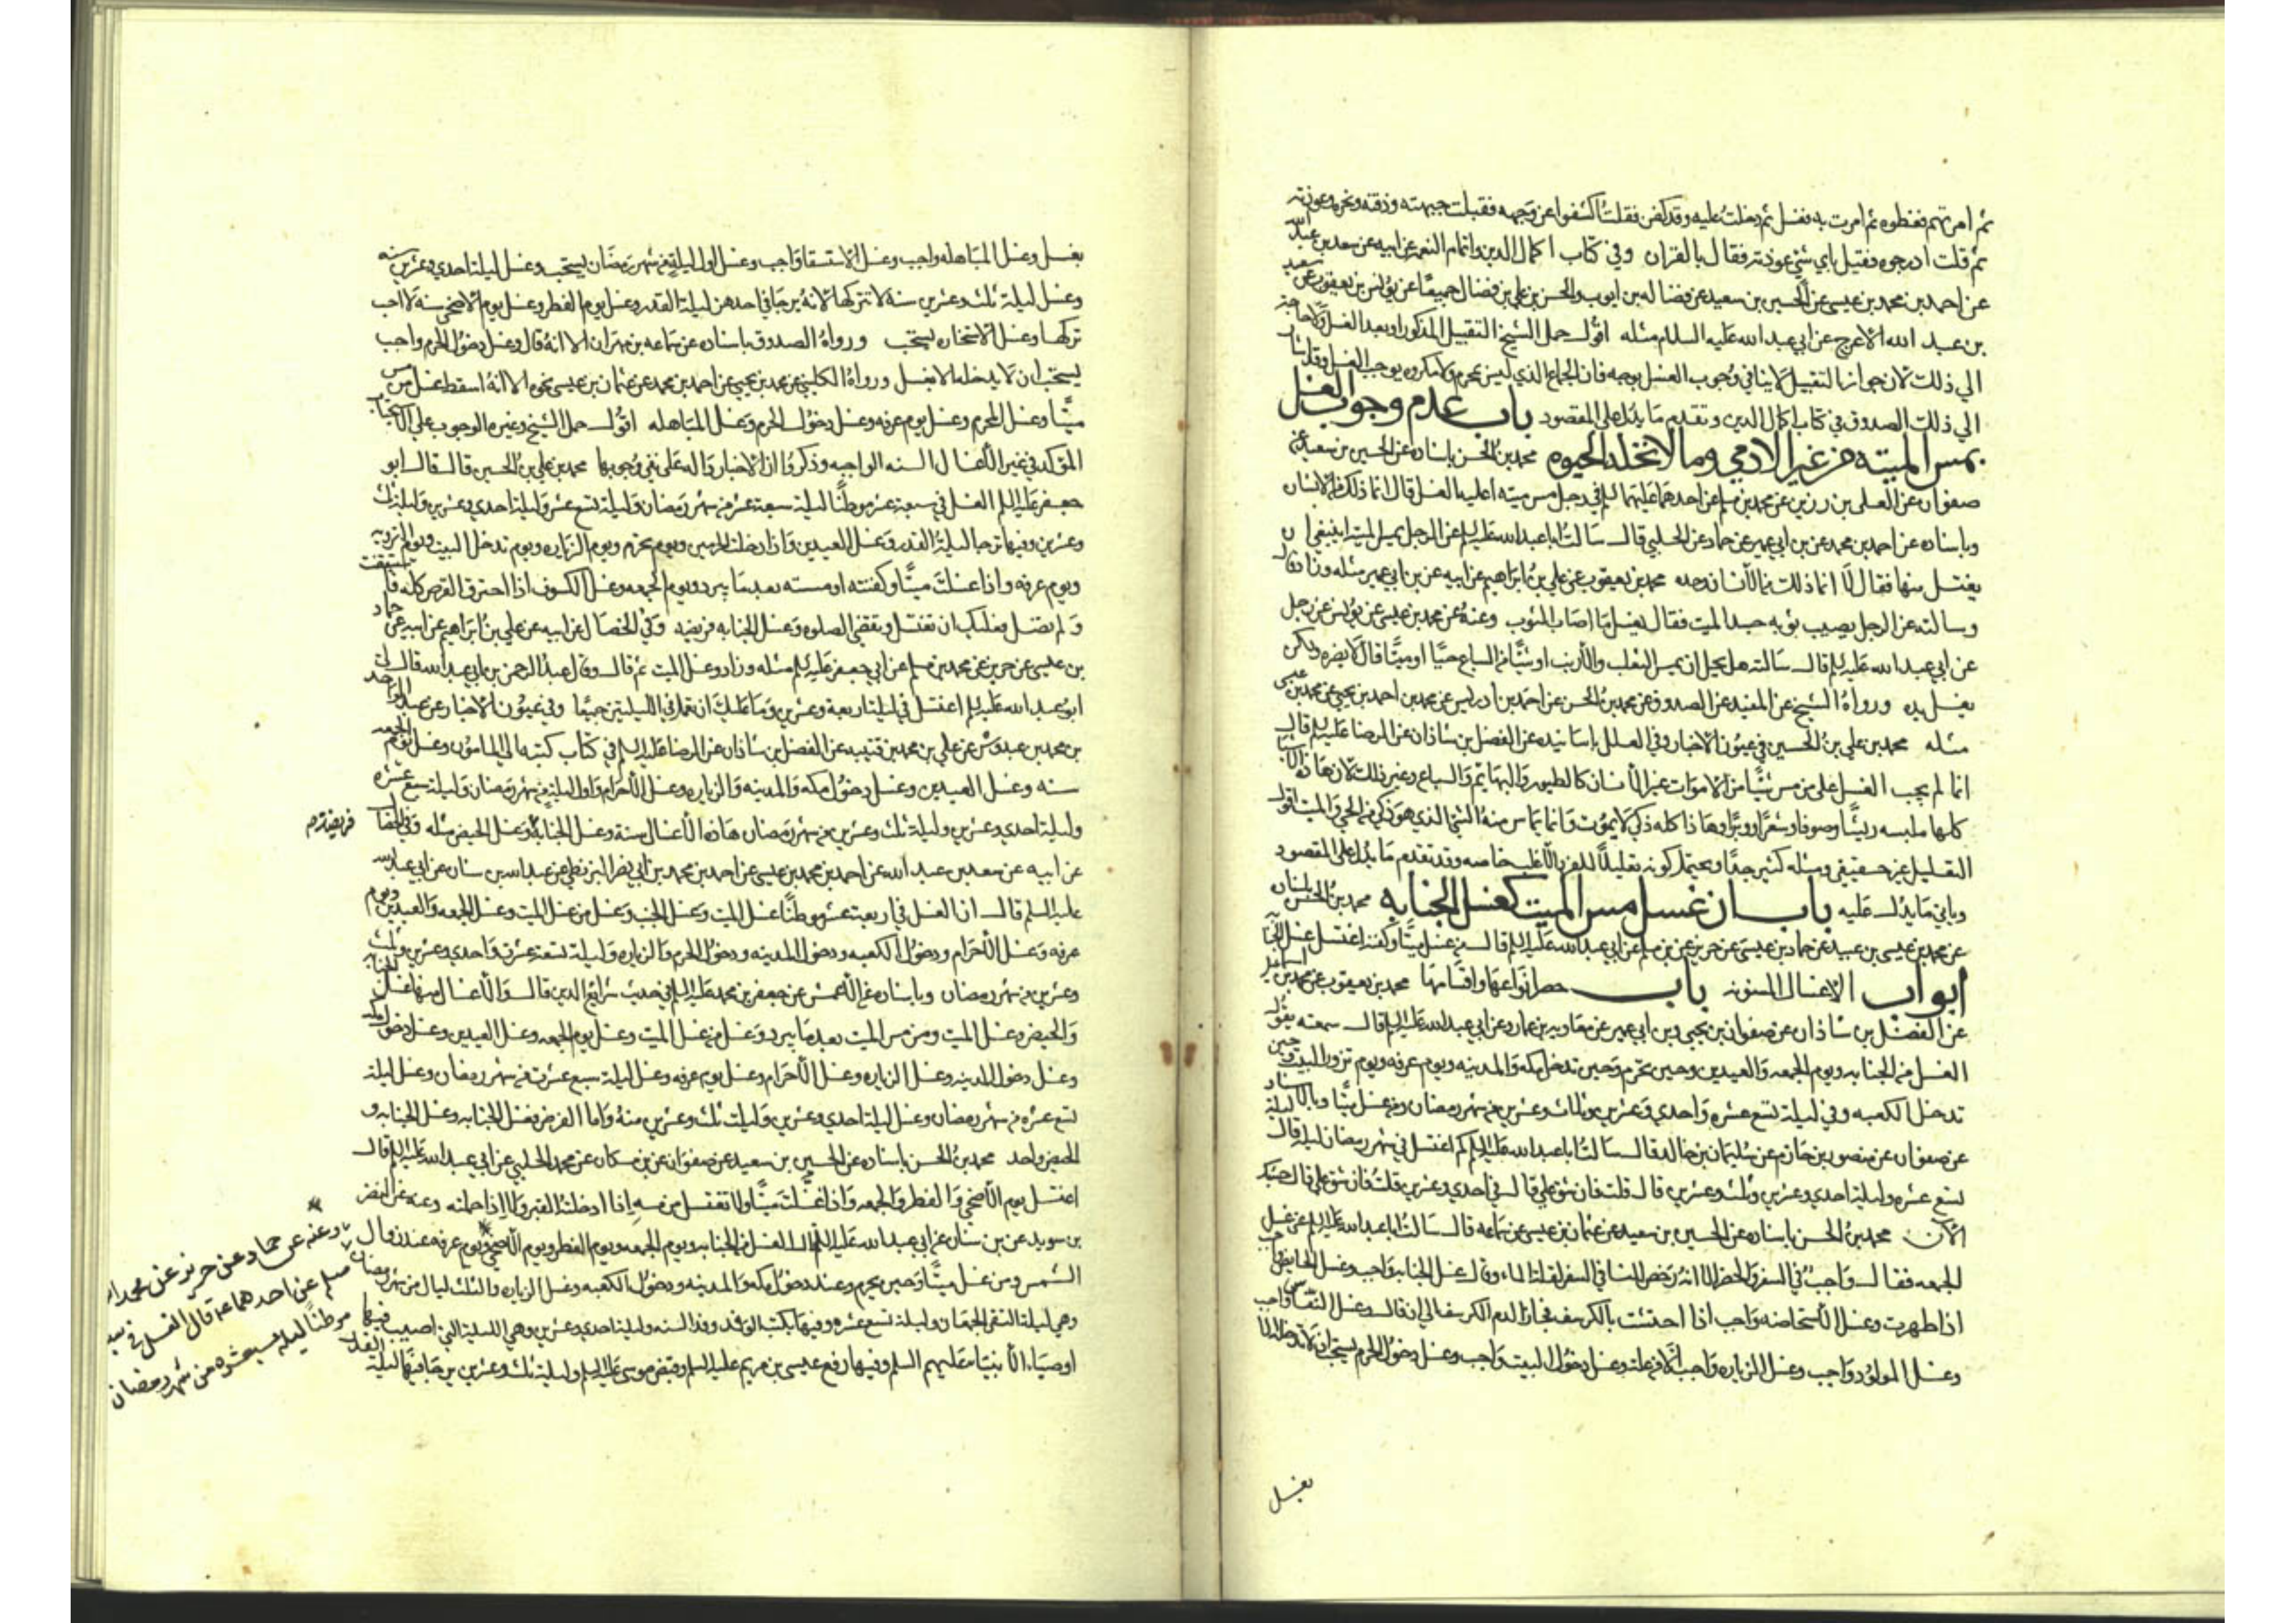 ثم امرتهم فغطوه ثم امرت به فغسل ثم دخلت عليه وقد كفن فقلت اكشفوا عن وجهه فقبلت جبهته وذقنه ونحره وعوذته
ثم قلت ادرجوه فقيل باي شيء عوذته فقال بالقران وفي كتاب اكمال الدين واتمام النعمه عن ابيه عن سعد بن عبد الله
عن احمد بن محمد بن عيسى عن الحسين بن سعيد عن فضاله بن ايوب والحسن بن علي بن فضال جميعا عن يونس بن يعقوب عن سعيد
بن عبد الله الاعرج عن ابي عبد الله عليه السلام مثله اقول حمل الشيخ التقبيل المذكور او بعد الغسل ولا حاجه
الي ذلك لان جواز التقبيل لا ينافي وجوب الغسل بوجه فان الجماع الذي ليس بمحرم ولا مكروه يوجب الغسل وقد اشار
الي ذلك الصدوق في كتاب اكمال الدين وتقدم ما يدل على المقصود باب عدم وجوب الغسل
بمس الميته من غير الادمي وما لا تحله الحيوه محمد بن الحسن باسناده عن الحسين بن سعيد عن
صفوان عن العلى بن رزين عن محمد بن مسلم عن احدهما عليهما السلم في رجل مس ميته اعليه الغسل قال انما ذلك من الانسان
وباسناده عن احمد بن محمد عن بن ابي عمير عن حماد عن الحلبي قال سالت ابا عبد الله عليه السلم عن الرجل يمس الميته اينبغي ان
يغتسل منها فقال لا انما ذلك من الانسان وحده محمد بن يعقوب عن علي بن ابراهيم عن ابيه عن بن ابي عمير مثله وزاد قال
وسالته عن الرجل يصيب ثوبه جسد الميت فقال يغسل ما اصاب الثوب وعنه عن محمد بن عيسى عن يونس عن رجل
عن ابي عبد الله عليه السلم قال سالته هل يحل ان يمس الثعلب والارنب او شيئا من السباع حيا او ميتا قال لا يضره ولكن
يغسل يده ورواه الشيخ عن المفيد عن الصدوق عن محمد بن الحسن عن احمد بن ادريس عن محمد بن احمد بن يحيى عن محمد بن عيسى
مثله محمد بن علي بن الحسين في عيون الاخبار وفي العلل باسانيده عن الفضل بن شاذان عن الرضا عليه السلم قال
انما لم يجب الغسل على من مس شيئا من الاموات غير الانسان كالطيور والبهائم والسباع وغير ذلك لان هاذه الاشيا
كلها ملبسه ريشا وصوفا وشعرا ووبرا وهاذا كله ذكي لا يموت وانما يماس منه الشيء الذي هو ذكي من الحي والميت اقول
التعليل غير حقيقي ومثله كثير جدا ويحتمل كونه تعليلا للفرد الاغلب خاصه وقد تقدم ما يدل على المقصود
وياتي ما يدل عليه باب ان غسل مس الميت كغسل الجنابه محمد بن الحسن باسناده
عن محمد بن عيسى بن عبيد عن حماد بن عيسى عن حريز عن بن مسلم عن ابي عبد الله عليه السلم قال من غسل ميتا وكفنه اغتسل غسل الجنابه
ابواب الاغسال المسنونه باب حصر انواعها واقسامها محمد بن يعقوب عن محمد بن اسماعيل
عن الفضل بن شاذان عن صفوان بن يحيى وبن ابي عمير عن معاويه بن عمار عن ابي عبد الله عليه السلم قال سمعته يقول
الغسل من الجنابه ويوم الجمعه والعيدين وحين تحرم وحين تدخل مكه والمدينه ويوم عرفه ويوم تزور البيت وحين
تدخل الكعبه وفي ليلة تسع عشره واحدي وعشرين وثلاث وعشرين من شهر رمضان ومن غسل ميتا وبالاسناد
عن صفوان عن منصور بن حازم عن سليمان بن خالد قال سالت ابا عبد الله عليه السلم كم اغتسل في شهر رمضان ليله قال ليلة
تسع عشره وليلة احدي وعشرين وثلث وعشرين قال قلت فان شق علي قال في احدي وعشرين قلت فان شق علي قال حسبك
الان محمد بن الحسن باسناده عن الحسين بن سعيد عن عثمان بن عيسى عن سماعه قال سالت ابا عبد الله عليه السلم عن غسل
الجمعه فقال واجب في السفر والحضر الا انه رخص للنسا في السفر لقلة الماء وقال غسل الجنابه واجب وغسل الحايض واجب
اذا طهرت وغسل الاستحاضه واجب اذا احتشت بالكرسف فجاز الدم الكرسف الي ان قال وغسل النفاس واجب
وغسل المولود واجب وغسل الزياره واجب الا من عله وغسل دخول البيت واجب وغسل دخول الحرم يستحب ان لا تدخله الا
بغسل
بغسل وغسل المباهله واجب وغسل الاستسقا واجب وغسل اول ليلة من شهر رمضان يستحب وغسل ليلة احدي وعشرين سنه
وغسل ليلة ثلث وعشرين سنة لا تتركها لانه يرجا في احدهن ليلة القدر وغسل يوم الفطر وغسل يوم الاضحى سنه لا احب
تركها وغسل الاستخاره يستحب ورواه الصدوق باسناده عن سماعه بن مهران الا انه قال وغسل دخول الحرم واجب
يستحب ان لا يدخله الا بغسل ورواه الكليني عن محمد بن يحيى عن احمد بن محمد عن عثمان بن عيسى نحوه الا انه اسقط غسل من مس
ميتا وغسل المحرم وغسل يوم عرفه وغسل دخول الحرم وغسل المباهله اقول حمل الشيخ وغيره الوجوب على الاستحباب
المؤكد في غير الاغسال السته الواجبه وذكروا ان الاخبار داله على نفي وجوبها محمد بن علي بن الحسين قال قال ابو
جعفر عليه السلم الغسل في سبعة عشر موطنا ليلة سبعة عشر من شهر رمضان وليلة تسع عشر وليلة احدي وعشرين وليلة ثلث
وعشرين وفيها ترجا ليلة القدر وغسل العيدين واذا دخلت الحرمين ويوم تحرم ويوم الزياره ويوم تدخل البيت ويوم الترويه
ويوم عرفه واذا غسلت ميتا وكفنته او مسسته بعد ما يبرد ويوم الجمعه وغسل الكسوف اذا احترق القرص كله فاستيقظت
ولم تصل فعليك ان تغتسل وتقضي الصلوه وغسل الجنابه فريضه وفي الخصال عن ابيه عن علي بن ابراهيم عن ابيه عن حماد
بن عيسى عن حريز عن محمد بن مسلم عن ابي جعفر عليه السلم مثله وزاد وغسل الميت ثم قال وقال عبد الرحمن بن ابي عبد الله قال لي
ابو عبد الله عليه السلم اغتسل في ليلة اربعة وعشرين وما عليك ان تعمل في الليلتين جميعا وفي عيون الاخبار عن عبد الواحد
بن محمد بن عبدوس عن علي بن محمد بن قتيبه عن الفضل بن شاذان عن الرضا عليه السلم في كتاب كتبه الي المامون وغسل يوم الجمعه
سنه وغسل العيدين وغسل دخول مكه والمدينه والزياره وغسل الاحرام واول ليلة من شهر رمضان وليلة سبع عشره
وليلة احدي وعشرين وليلة ثلث وعشرين من شهر رمضان هاذه الاغسال سنة وغسل الجنابه وغسل الحيض مثله وفي الخصال
فريضة م
عن ابيه عن سعد بن عبد الله عن احمد بن محمد بن عيسى عن احمد بن محمد بن ابي نصر البزنطي عن عبد الله بن سنان عن ابي عبد الله
عليه السلم قال ان الغسل في اربعة عشر موطنا غسل الميت وغسل الجنب وغسل من غسل الميت وغسل الجمعه والعيدين ويوم
عرفه وغسل الاحرام ودخول الكعبه ودخول المدينه ودخول الحرم والزياره وليلة تسعة عشر واحدي وعشرين وثلث
وعشرين من شهر رمضان وباسناده عن الاعمش عن جعفر بن محمد عليه السلم في حديث شرايع الدين قال والاغسال منها غسل الجنابه
والحيض وغسل الميت ومن مس الميت بعد ما يبرد وغسل من غسل الميت وغسل يوم الجمعه وغسل العيدين وغسل دخول مكه
وغسل دخول المدينه وغسل الزياره وغسل الاحرام وغسل يوم عرفه وغسل ليلة سبع عشرة من شهر رمضان وغسل ليلة
تسع عشره من شهر رمضان وغسل ليلة احدي وعشرين وليلة ثلث وعشرين منه واما الفرض فغسل الجنابه وغسل الجنابه و
الحيض واحد محمد بن الحسن باسناده عن الحسين بن سعيد عن صفوان عن بن مسكان عن محمد الحلبي عن ابي عبد الله عليه السلم قال
اغتسل يوم الاضحى والفطر والجمعه واذا غسلت ميتا ولا تغتسل من مسه اذا ادخلته القبر ولا اذا حملته وعنه عن النضر
بن سويد عن بن سنان عن ابي عبد الله عليه السلم قال الغسل من الجنابه ويوم الجمعه ويوم الفطر ويوم الاضحى ويوم عرفه عند زوال
الشمس ومن غسل ميتا وحين يحرم وعند دخول مكه والمدينه ودخول الكعبه وغسل الزياره والثلث ليال من شهر رمضان
وعنه عن حماد عن حريز عن محمد بن
مسلم عن احدهما ع قال الغسل في
موطنا ليلة سبع عشره من شهر رمضان
وهي ليلة التقى الجمعان وليلة تسع عشره وفيها يكتب الوفد وفد السنه وليلة احدي وعشرين وهي الليلة التي اصيب فيها
اوصياء الانبياء عليهم السلم وفيها رفع عيسى بن مريم عليه السلم وقبض موسى عليه السلم وليلة ثلث وعشرين يرجا فيها ليلة القدر